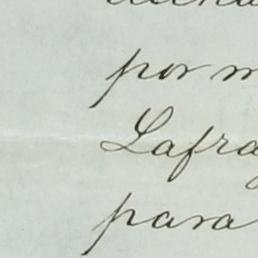 por
Lafra
para